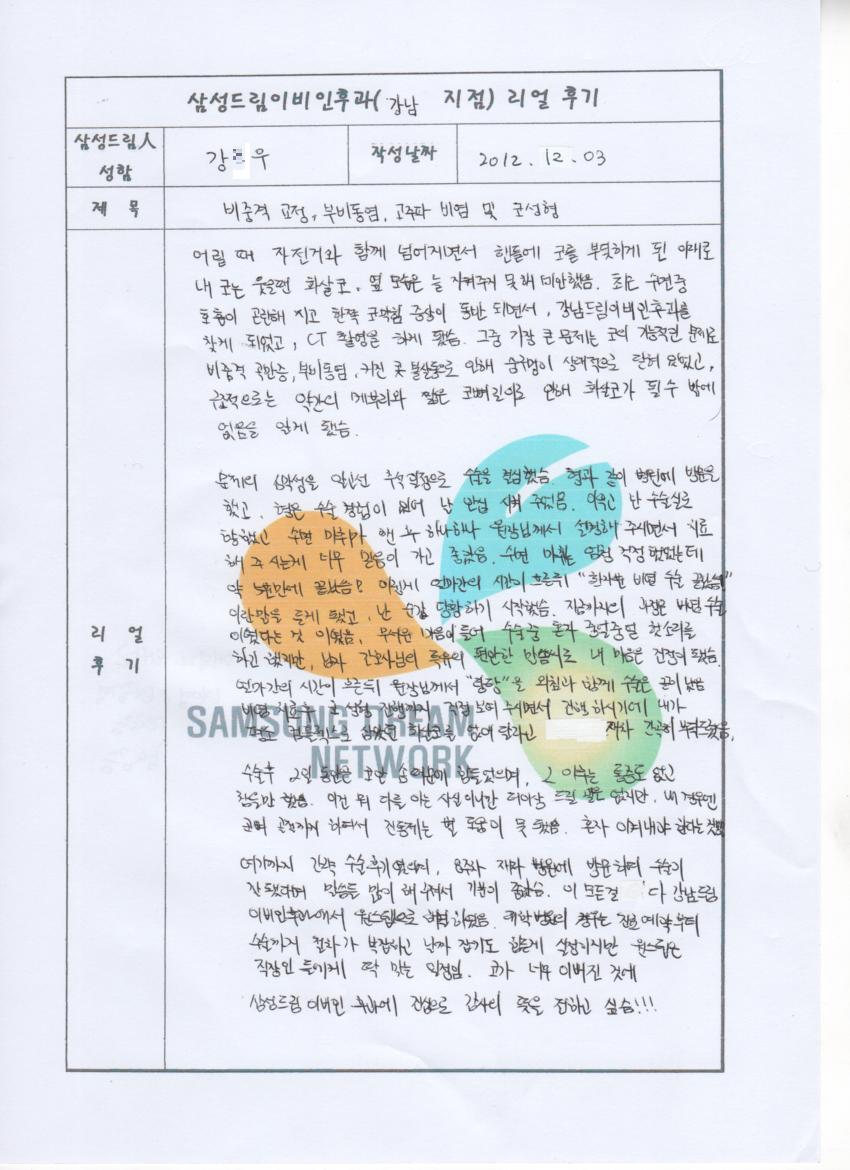 삼성드림이비인후과( 강남 지점) 리얼 후기
삼성드림人
성함
강 우
작성날짜
2012. 12. 03
제 목
비중격 교정, 부비동염, 고주파 비염 및 코성형
리 얼
후 기
어릴 때 자전거와 함께 넘어지면서 핸들에 코를 부딪하게 된 이래로
내 코는 웃을땐 화살코, 옆 모습은 늘 지켜주지 못해 미안했음. 최근 수면중
호흡이 곤란해 지고 한쪽 코막힘 증상이 동반 되면서, 강남드림이비인후과를
찾게 되었고, CT 촬영을 하게 됐슴. 그중 가장 큰 문제는 코의 기능적인 문제로
비중격 만곡증, 부비동염, 커진 콧불살등으로 인해 숨구멍이 상대적으로 닫혀 있었고,
구조적으로는 약간의 메부리와 짧은 코뼈길이로 인해 화살코가 될 수 밖에
없음을 알게 됐슴.
문제의 심각성을 알고선 즉석결정으로 수술을 결심했슴. 형과 같이 병원에 방문을
했고, 형은 수술 경험이 있어 날 안심 시켜 주었음. 이윽고 난 수술실로
향했고 수면 마취가 된 후 하나하나 원장님께서 설명해 주시면서 치료
해 주시는게 너무 믿음이 가고 좋았음. 수면 마취는 엄청 걱정 했었는데
약 만에 끝났슴! 이렇게 얼마간의 시간이 흐른뒤 "환자분 비염 수술 끝났습니"
이란말을 듣게 됐고, 난 순간 당황하기 시작했슴. 지금까지의 과정은 비염 수술
이었다는 것 이었음. 무서운 마음이 들어 수술중 혼자 중얼중얼 헛소리를
하고 있었지만, 남자 간호사님의 특유의 편안한 말씀씨로 내 마음은 진정이 됐슴.
얼마간의 시간이 흐른뒤 원장님께서 을 외침과 함께 수술은 끝이 났슴
비염 치료후 코 성형 진행까지 직접 보여 주시면서 진행 하시기에 내가
평소 컴플렉스로 삼았던 화살코를 없애 달라고 재차 간곡히 부탁드렸음,
수술후 2일 동안은 코안 솜 때문에 힘들었으며, 2일 이후는 통증도 없고
참을만 했슴. 이건 뭐 다들 아는 사실이니깐 더이상 드릴 말은 없지만, 내 경우엔
코뼈 골절까지 하면서 진통제는 별 도움이 못 됐슴. 혼자 이겨내야 한다는것!!
여기까지 간략 수술후기였으며, 8주차 재차 병원에 방문하여 수술이
잘 됐다며 말씀들 많이 해 주셔서 기분이 좋았슴. 이 모든걸 다 강남드림
이비인후과에서 원스텝으로 해결 하였음. 대학병원의 경우는 진료 예약부터
수술까지 절차가 복잡하고 날짜 잡기도 힘든게 실정이지만 원스텝은
직장인 들에게 딱 맞는 일정임. 코가 너무 이뻐진 것에
삼성드림 이비인 후과에 진심으로 감사의 뜻을 전하고 싶슴!!!
SAMSUNG DREAM
NETWORK